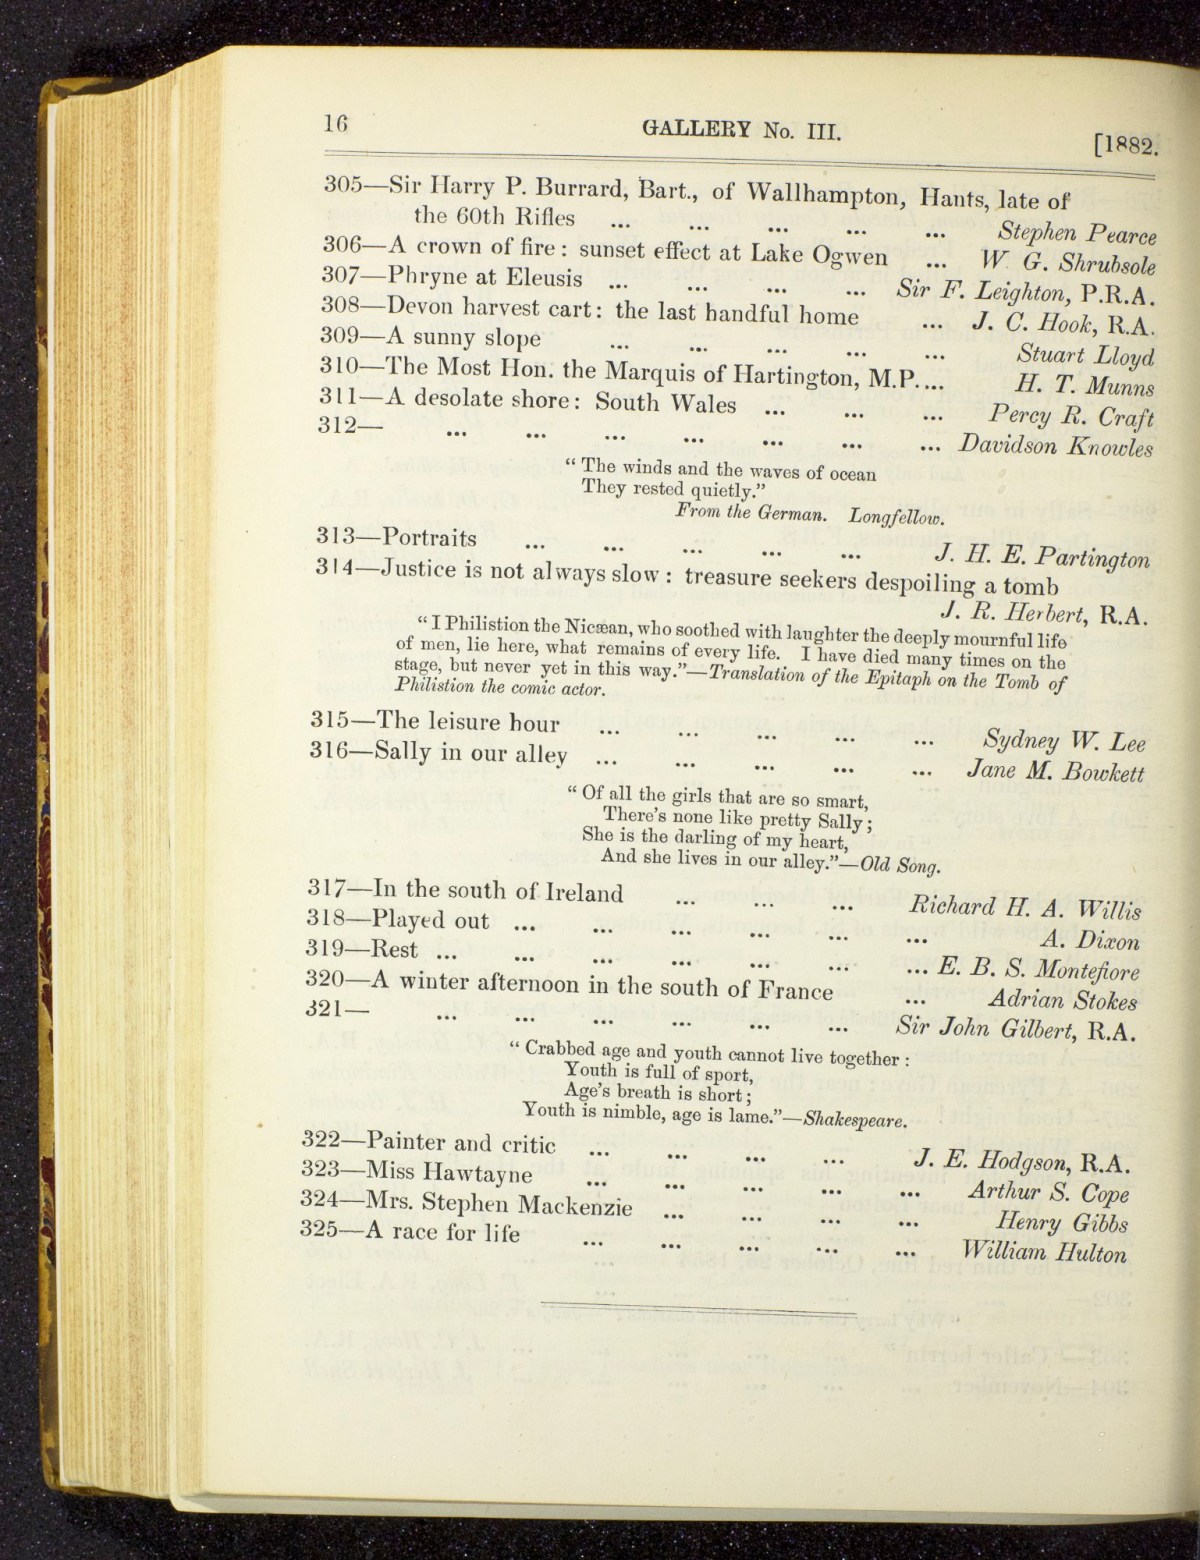 16 GALLERY No. III. [1882.
305—Sir Harry P. Burrard, Bart., of Wallhampton, Hants, late of
the 60th Rifles ... ... ... ... ... Stephen Pearce
306—A crown of fire: sunset effect at Lake Ogwen ... W. G. Shrubsole
307—Phryne at Eleusis ... ... ... ... Sir F. Leighton, P.R.A.
308—Devon harvest cart: the last handful home ... J. C. Hook, R.A.
309—A sunny slope ... ... ... ... ... Stuart Lloyd
310—The Most Hon. the Marquis of Hartington, M.P.... H. T. Munns
311—A desolate shore: South Wales ... ... ... Percy R. Craft
312— ... ... ... ... ... ... ... Davidson Knowles
“The winds and the waves of ocean
They rested quietly.”
From the German. Longfellow.
313—Portraits ... ... ... ... ... J. H. E. Partington
314—Justice is not always slow: treasure seekers despoiling a tomb
J. R. Herbert, R.A.
“I Philistion the Nicæan, who soothed with laughter the deeply mournful life
of men, lie here, what remains of every life. I have died many times on the
stage, but never yet in this way.”—Translation of the Epitaph on the Tomb of
Philistion the comic actor.
315—The leisure hour ... ... ... ... ... Sydney W. Lee
316—Sally in our alley ... ... ... ... ... Jane M. Bowkett
“Of all the girls that are so smart,
There's none like pretty Sally;
She is the darling of my heart,
And she lives in our alley.”—Old Song.
317—In the south of Ireland ... ... ... Richard H. A. Willis
318—Played out ... ... ... ... ... ... A. Dixon
319—Rest ... ... ... ... ... ... ... E. B. S. Montefiore
320—A winter afternoon in the south of France ... Adrian Stokes
321— ... ... ... ... ... ... Sir John Gilbert, R.A.
“Crabbed age and youth cannot live together:
Youth is full of sport,
Age's breath is short;
Youth is nimble, age is lame.”—Shakespeare.
322—Painter and critic ... ... ... ... J. E. Hodgson, R.A.
323—Miss Hawtayne ... ... ... ... ... Arthur S. Cope
324—Mrs. Stephen Mackenzie ... ... ... ... Henry Gibbs
325—A race for life ... ... ... ... ... William Hulton